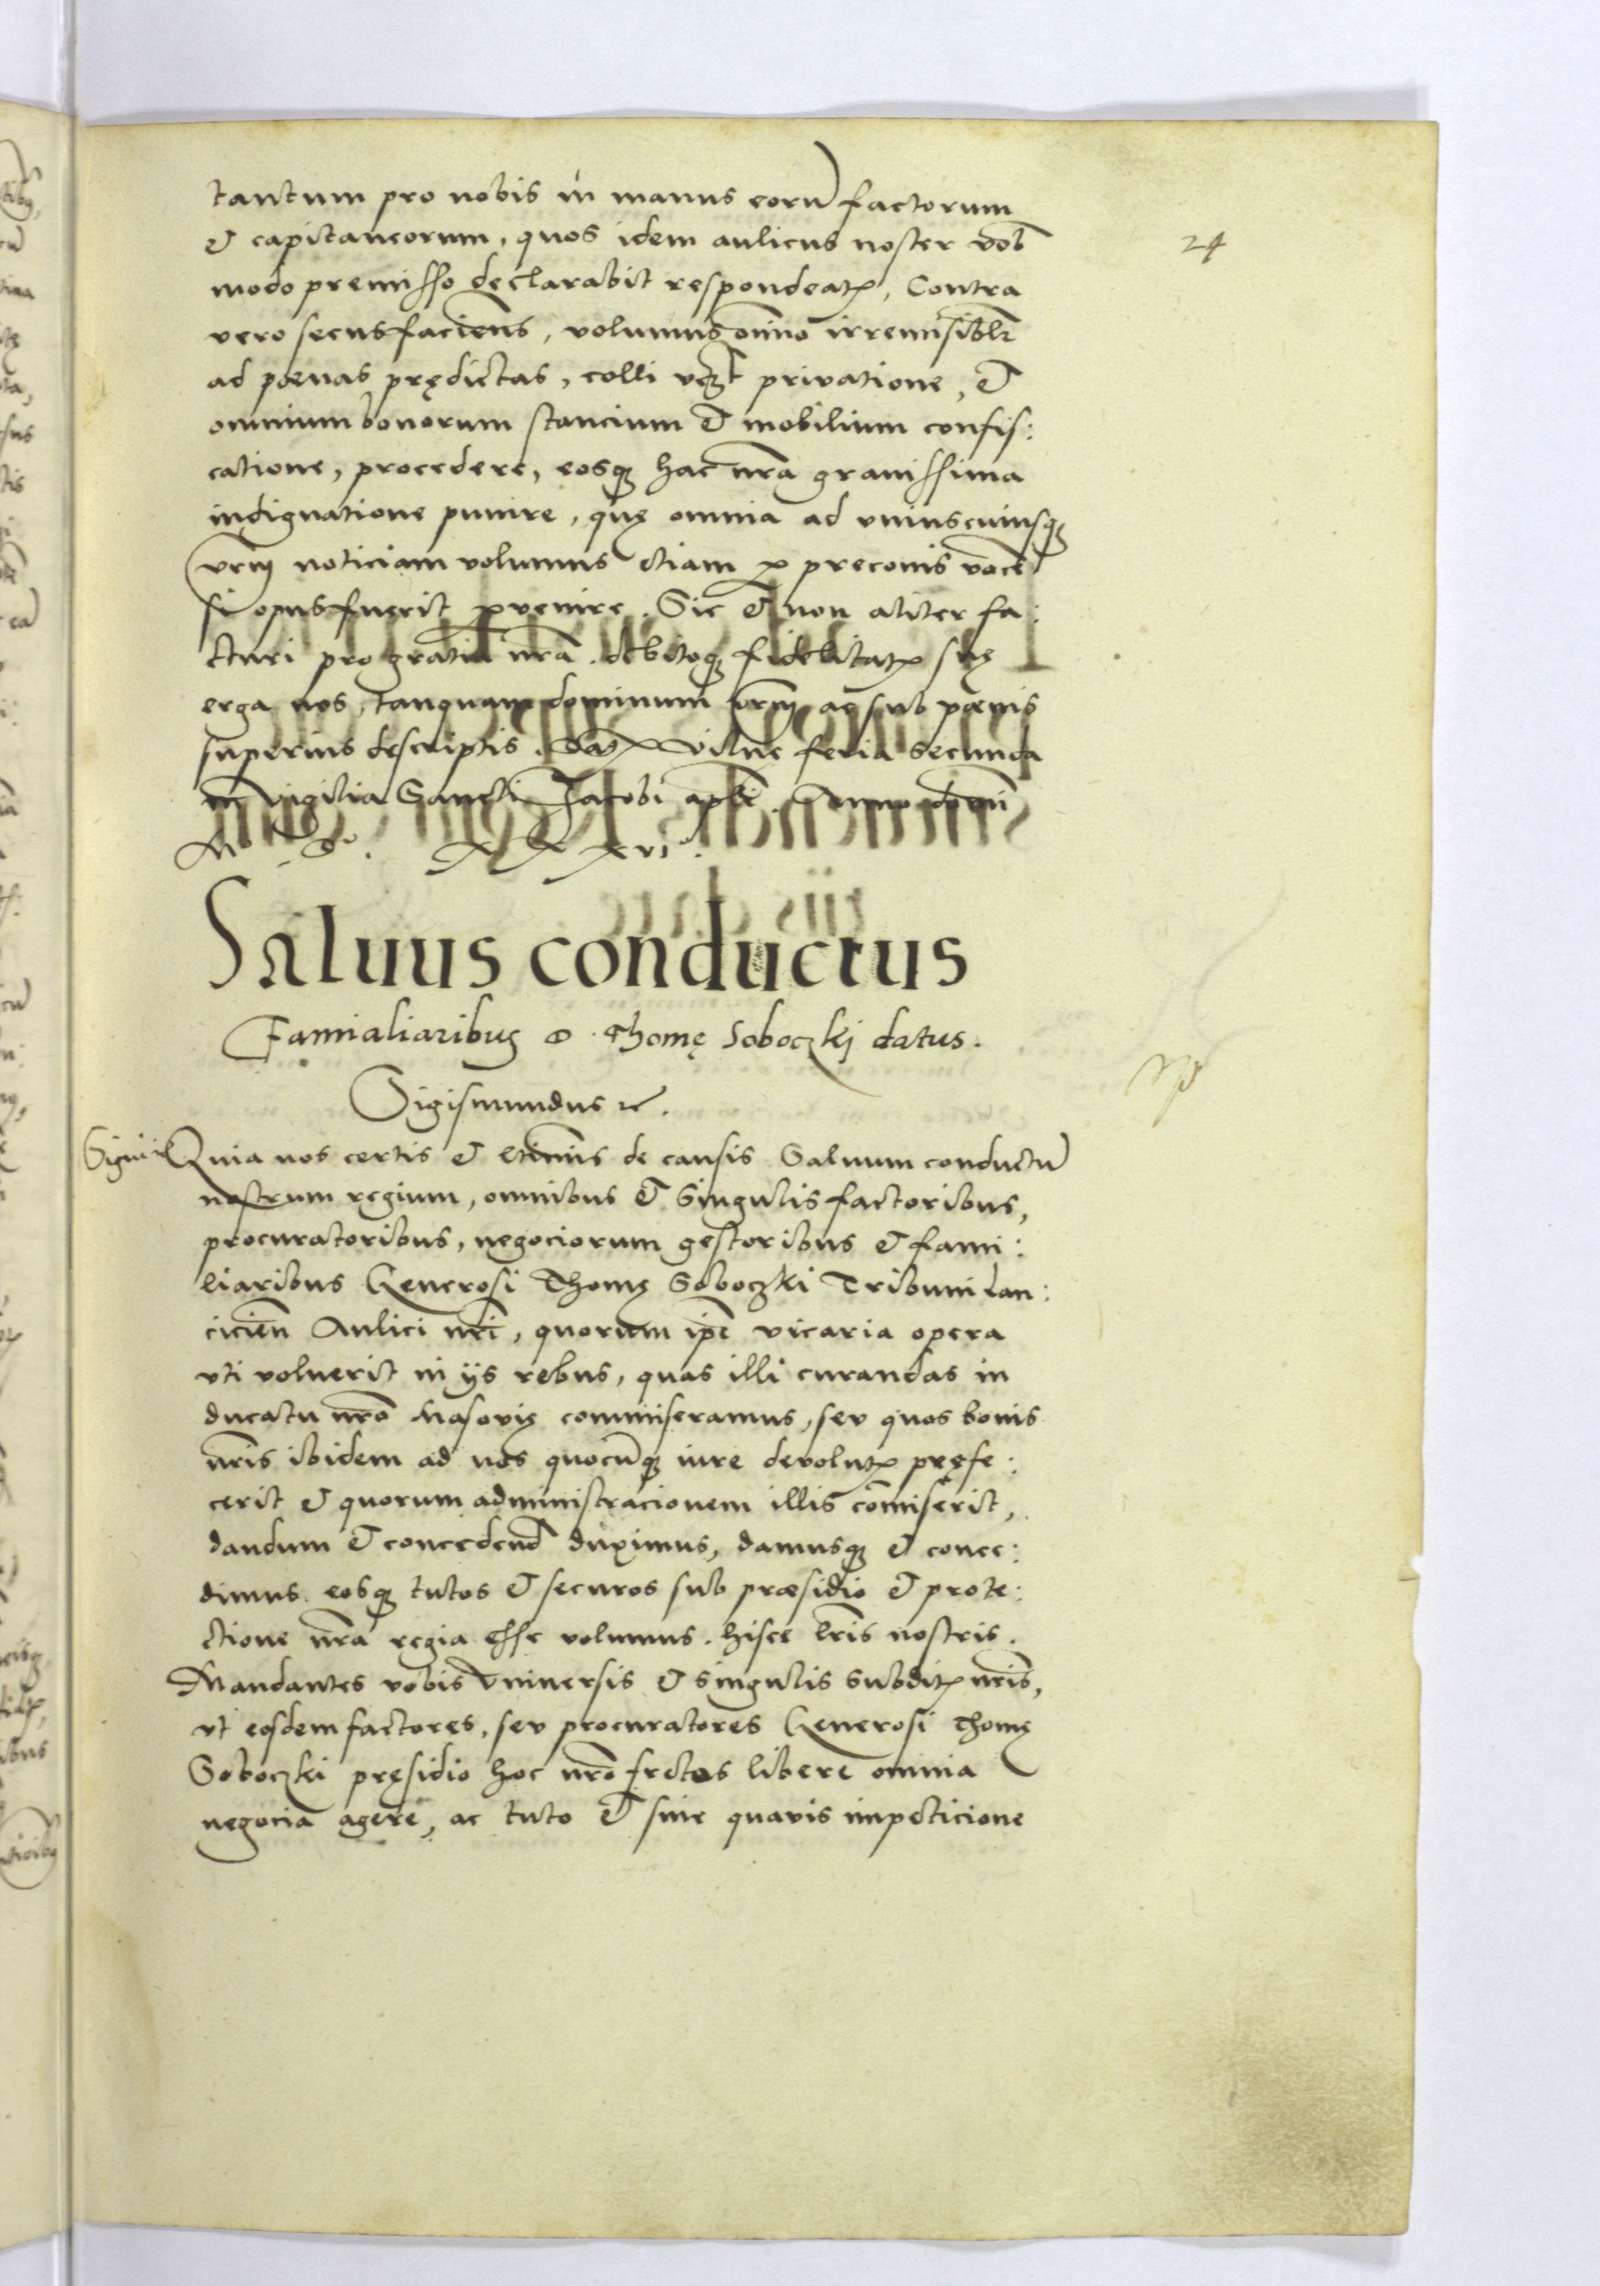 tantum pro nobis in manus eorū factorum
& capitaneorum, quos idem aulicus noster vob̄
24
modo premisso declarabit respondeatꝭ, Contra
vero secus faciens̄, volumus om̄ino irremisibl̄r
ad pœnas prędictas, colli vcꝫt privatione, &
omnium bonorum stancium & mobilium confis:
catione, procedere, eosqꝫ hac nr̄a grauissima
indignatione punire, quę omnia ad vniuscuiusqꝫ
vr̄m noticiam volumus etiam ꝑ preconis vocē
si opus fuerit ꝑvenire. Sic & non aliter fa:
cturi pro gratia nr̄a. debitoqꝫ fidelitatꝭ suę
erga nos, tanquam dominum vr̄m ac sub pœnis
superius descriptis. Datꝭ Vilne feria secunda
in vigilia Sancti Jacobi apl̄i. Anno domī
M. D. XXXVI.
Saluus conductus
Familiaribus D. Thomę Soboczkj datus.
Sigismundus ꝛc.
Signi Quia nos certis & l̄timis de causis Saluum conductū
nostrum regium, omnibus & singulis factoribus,
procuratoribus, negociorum gestoribus & fami:
liaribus Generosi Thomę Soboczki Tribuni Lan:
cicien̄ Aulici nr̄i, quorum ip̄e vicaria opera
vti voluerit in ijs rebus, quas illi curandas in
ducatu nr̄o Masovię commiseramus, seu quos bonis
nr̄is ibidem ad nos quocūqꝫ iure devolutꝭ pręfe:
cerit & quorum administracionem illis cōmiserit,
dandum & concedend̄ duximus, damusqꝫ & conce:
dimus. eosqꝫ tutos & securos sub præsidio & prote:
ctione nr̄a regia esse volumus. hisce l̄ris nostris.
Mandantes vobis vniversis & singulis subditꝭ nr̄is,
vt eosdem factores, seu procuratores Generosi Thomę
Soboczki pręsidio hoc nr̄o fretos libere omnia
negocia agere, ac tuto & sine quavis impeticione